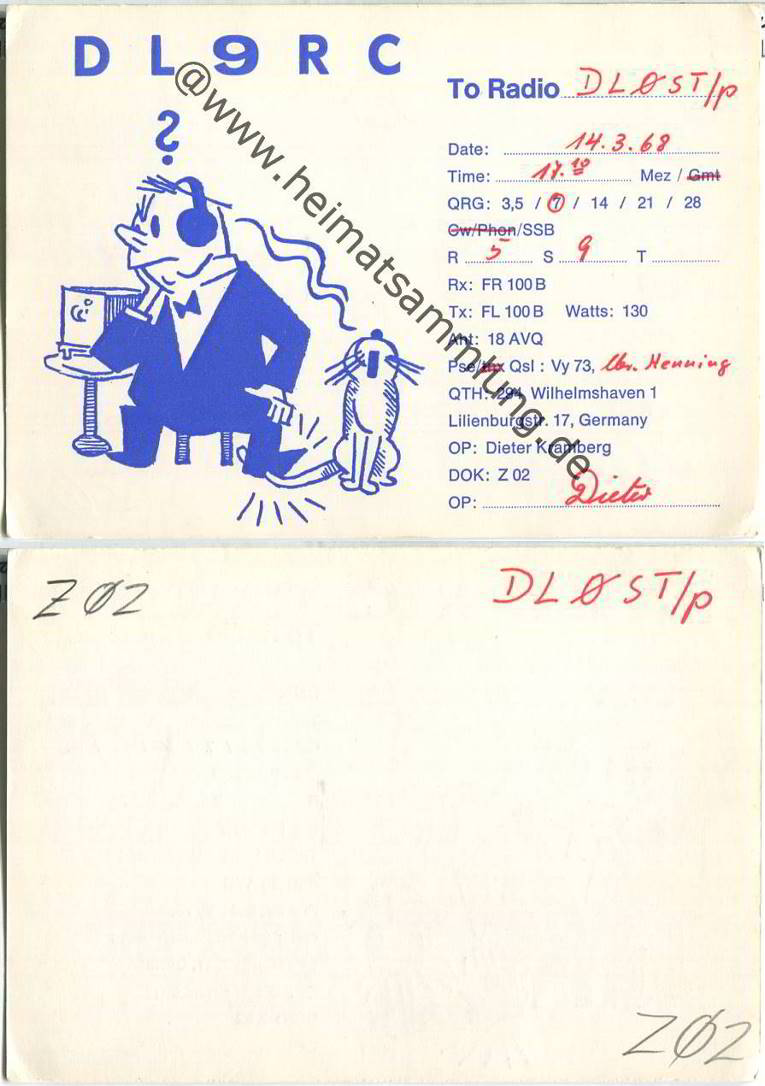 DL9RC
?
To Radio DLØST/p
Date: 14.3.68
Time: 17.10 Mez / Gmt
QRG: 3,5 / 7 / 14 / 21 / 28
Cw/Phon/SSB
R 5 S 9 T
Rx: FR 100 B
Tx: FL 100 B Watts: 130
Aht: 18 AVQ
Pse/tnx Qsl : Vy 73, lbr. Henning
QTH: 294 Wilhelmshaven 1
Lilienburgstr. 17, Germany
OP: Dieter Kramberg
DOK: Z 02
OP: Dieter
@www.heimatsammlung.de
ZØ2
DLØST/p
ZØ2